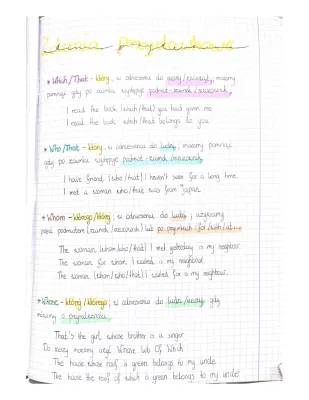 Zdania przydawkowe
• Which/That - który, w odniesieniu do rzeczy/zwierząt, możemy
pominąć gdy po zaimku występuje podmiot-zaimek/rzeczownik
I read the book (which/that) you had given me
I read the book which/that belongs to you
• Who/That - który, w odniesieniu do ludzi, możemy pominąć
gdy po zaimku występuje podmiot-zaimek/rzeczownik
I have friend (who/that) I haven't seen for a long time.
I met a woman who/that was from Japan.
• Whom - którego/której, w odniesieniu do ludzi, używamy
przed podmiotem (zaimek/rzeczownik) lub po przyimkach - for/with/at...
The woman (whom/who/that) I met yesterday is my neighbour.
The woman for whom I waited is my neighbour.
The woman (whom/who/that) I waited for is my neighbour.
• Whose - której/którego, w odniesieniu do ludzi/rzeczy gdy
mówimy o przynależności
That's the girl whose brother is a singer
Do rzeczy możemy użyć Whose lub Of Which
The house whose roof is green belongs to my uncle
The house the roof of which is green belongs to my uncle